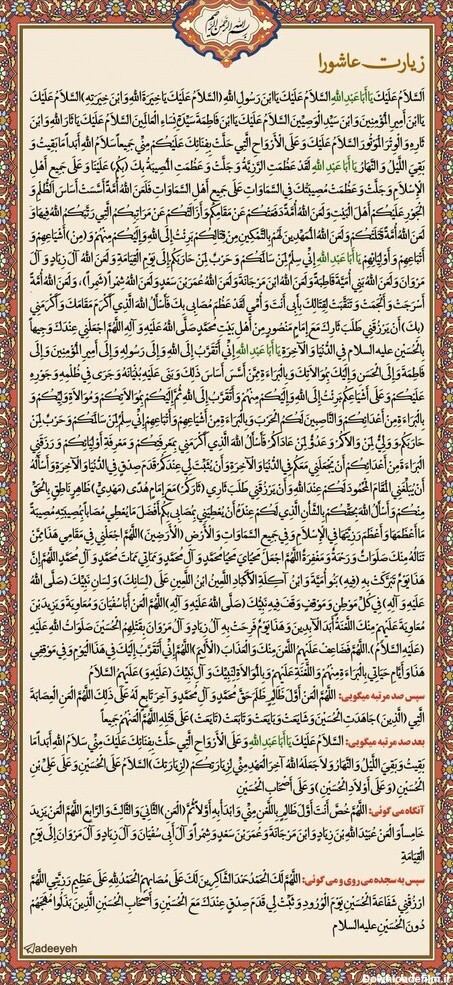 بسم الله الرحمن الرحیم
زیارت عاشورا
اَلسَّلامُ عَلَیْکَ یَا أَبا عَبْدِاللّٰهِ السَّلامُ عَلَیْکَ یَا ابْنَ رَسُولِ اللّٰهِ (السَّلامُ عَلَیْکَ یَا خِیَرَةَ اللّٰهِ وَ ابْنَ خِیَرَتِهِ) السَّلامُ عَلَیْکَ
یَا ابْنَ أَمِیرِ الْمُؤْمِنِینَ وَ ابْنَ سَیِّدِ الْوَصِیِّینَ السَّلامُ عَلَیْکَ یَا ابْنَ فاطِمَةَ سَیِّدَةِ نِساءِ الْعالَمِینَ السَّلامُ عَلَیْکَ یَا ثارَ اللّٰهِ وَ ابْنَ
ثارِهِ وَ الْوِتْرَ الْمَوْتُورَ السَّلامُ عَلَیْکَ وَ عَلَی الْأَرْواحِ الَّتِی حَلَّتْ بِفِنائِکَ عَلَیْکُمْ مِنِّی جَمِیعاً سَلامُ اللّٰهِ أَبَداً مَا بَقِیتُ وَ
بَقِیَ اللَّیْلُ وَ النَّهارُ یَا أَبا عَبْدِاللّٰهِ لَقَدْ عَظُمَتِ الرَّزِیَّةُ وَ جَلَّتْ وَ عَظُمَتِ الْمُصِیبَةُ بِکَ (بِکُمْ) عَلَیْنا وَ عَلَی جَمِیعِ أَهْلِ
الْإِسْلامِ وَ جَلَّتْ وَ عَظُمَتْ مُصِیبَتُکَ فِی السَّماواتِ عَلَی جَمِیعِ أَهْلِ السَّماواتِ فَلَعَنَ اللّٰهُ أُمَّةً أَسَّسَتْ أَساسَ الظُّلْمِ وَ
الْجَوْرِ عَلَیْکُمْ أَهْلَ الْبَیْتِ وَ لَعَنَ اللّٰهُ أُمَّةً دَفَعَتْکُمْ عَنْ مَقامِکُمْ وَ أَزالَتْکُمْ عَنْ مَراتِبِکُمُ الَّتِی رَتَّبَکُمُ اللّٰهُ فِیها وَ
لَعَنَ اللّٰهُ أُمَّةً قَتَلَتْکُمْ وَ لَعَنَ اللّٰهُ الْمُمَهِّدِینَ لَهُمْ بِالتَّمْکِینِ مِنْ قِتالِکُمْ بَرِئْتُ إِلَی اللّٰهِ وَ إِلَیْکُمْ مِنْهُمْ وَ (مِنْ) أَشْیاعِهِمْ وَ
أَتْباعِهِمْ وَ أَوْلِیائِهِمْ یَا أَبا عَبْدِاللّٰهِ إِنِّی سِلْمٌ لِمَنْ سالَمَکُمْ وَ حَرْبٌ لِمَنْ حارَبَکُمْ إِلَی یَوْمِ الْقِیامَةِ وَ لَعَنَ اللّٰهُ آلَ زِیادٍ وَ آلَ
مَرْوانَ وَ لَعَنَ اللّٰهُ بَنِی أُمَیَّةَ قاطِبَةً وَ لَعَنَ اللّٰهُ ابْنَ مَرْجانَةَ وَ لَعَنَ اللّٰهُ عُمَرَ بْنَ سَعْدٍ وَ لَعَنَ اللّٰهُ شِمْراً (شَمِراً)، وَ لَعَنَ اللّٰهُ أُمَّةً
أَسْرَجَتْ وَ أَلْجَمَتْ وَ تَنَقَّبَتْ لِقِتالِکَ بِأَبِی أَنْتَ وَ أُمِّی لَقَدْ عَظُمَ مُصابِی بِکَ فَأَسْأَلُ اللّٰهَ الَّذِی أَکْرَمَ مَقامَکَ وَ أَکْرَمَنِی
(بِکَ) أَنْ یَرْزُقَنِی طَلَبَ ثارِکَ مَعَ إِمامٍ مَنْصُورٍ مِنْ أَهْلِ بَیْتِ مُحَمَّدٍ صَلَّی اللّٰهُ عَلَیْهِ وَ آلِهِ اللّٰهُمَّ اجْعَلْنِی عِنْدَکَ وَجِیهاً
بِالْحُسَیْنِ علیه السلام فِی الدُّنْیا وَ الْآخِرَةِ یَا أَبا عَبْدِاللّٰهِ إِنِّی أَتَقَرَّبُ إِلَی اللّٰهِ وَ إِلَی رَسُولِهِ وَ إِلَی أَمِیرِ الْمُؤْمِنِینَ وَ إِلَی
فاطِمَةَ وَ إِلَی الْحَسَنِ وَ إِلَیْکَ بِمُوالاتِکَ وَ بِالْبَراءَةِ مِمَّنْ أَسَّسَ أَساسَ ذٰلِکَ وَ بَنی عَلَیْهِ بُنْیانَهُ وَ جَری فِی ظُلْمِهِ وَ جَوْرِهِ
عَلَیْکُمْ وَ عَلَی أَشْیاعِکُمْ بَرِئْتُ إِلَی اللّٰهِ وَ إِلَیْکُمْ مِنْهُمْ وَ أَتَقَرَّبُ إِلَی اللّٰهِ ثُمَّ إِلَیْکُمْ بِمُوالاتِکُمْ وَ مُوالاةِ وَلِیِّکُمْ وَ
بِالْبَراءَةِ مِنْ أَعْدائِکُمْ وَ النَّاصِبِینَ لَکُمُ الْحَرْبَ وَ بِالْبَراءَةِ مِنْ أَشْیاعِهِمْ وَ أَتْباعِهِمْ إِنِّی سِلْمٌ لِمَنْ سالَمَکُمْ وَ حَرْبٌ لِمَنْ
حارَبَکُمْ وَ وَلِیٌّ لِمَنْ والاکُمْ وَ عَدُوٌّ لِمَنْ عاداکُمْ فَأَسْأَلُ اللّٰهَ الَّذِی أَکْرَمَنِی بِمَعْرِفَتِکُمْ وَ مَعْرِفَةِ أَوْلِیائِکُمْ وَ رَزَقَنِی
الْبَراءَةَ مِنْ أَعْدائِکُمْ أَنْ یَجْعَلَنِی مَعَکُمْ فِی الدُّنْیا وَ الْآخِرَةِ وَ أَنْ یُثَبِّتَ لِی عِنْدَکُمْ قَدَمَ صِدْقٍ فِی الدُّنْیا وَ الْآخِرَةِ وَ أَسْأَلُهُ
أَنْ یُبَلِّغَنِی الْمَقامَ الْمَحْمُودَ لَکُمْ عِنْدَ اللّٰهِ وَ أَنْ یَرْزُقَنِی طَلَبَ ثارِی (ثارِکُمْ) مَعَ إِمامٍ هُدًی (مَهْدِیٍّ) ظاهِرٍ ناطِقٍ بِالْحَقِّ
مِنْکُمْ وَ أَسْأَلُ اللّٰهَ بِحَقِّکُمْ وَ بِالشَّأْنِ الَّذِی لَکُمْ عِنْدَهُ أَنْ یُعْطِیَنِی بِمُصابِی بِکُمْ أَفْضَلَ مَا یُعْطِی مُصاباً بِمُصِیبَتِهِ مُصِیبَةً
مَا أَعْظَمَها وَ أَعْظَمَ رَزِیَّتَها فِی الْإِسْلامِ وَ فِی جَمِیعِ السَّماواتِ وَ الْأَرْضِ (الْأَرَضِینَ) اللّٰهُمَّ اجْعَلْنِی فِی مَقامِی هٰذا مِمَّنْ
تَنالُهُ مِنْکَ صَلَواتٌ وَ رَحْمَةٌ وَ مَغْفِرَةٌ اللّٰهُمَّ اجْعَلْ مَحْیایَ مَحْیا مُحَمَّدٍ وَ آلِ مُحَمَّدٍ وَ مَماتِی مَماتَ مُحَمَّدٍ وَ آلِ مُحَمَّدٍ اللّٰهُمَّ إِنَّ
هٰذا یَوْمٌ تَبَرَّکَتْ بِهِ (فِیهِ) بَنُو أُمَیَّةَ وَ ابْنُ آکِلَةِ الْأَکْبادِ اللَّعِینُ ابْنُ اللَّعِینِ عَلَی (لِسانِکَ) وَ لِسانِ نَبِیِّکَ (صَلَّی اللّٰهُ
عَلَیْهِ وَ آلِهِ) فِی کُلِّ مَوْطِنٍ وَ مَوْقِفٍ وَقَفَ فِیهِ نَبِیُّکَ (صَلَّی اللّٰهُ عَلَیْهِ وَ آلِهِ) اللّٰهُمَّ الْعَنْ أَبا سُفْیانَ وَ مُعاوِیَةَ وَ یَزِیدَ بْنَ
مُعاوِیَةَ عَلَیْهِمْ مِنْکَ اللَّعْنَةُ أَبَدَ الْآبِدِینَ وَ هٰذا یَوْمٌ فَرِحَتْ بِهِ آلُ زِیادٍ وَ آلُ مَرْوانَ بِقَتْلِهِمُ الْحُسَیْنَ صَلَواتُ اللّٰهِ عَلَیْهِ
(عَلَیْهِ السَّلامُ). اللّٰهُمَّ فَضاعِفْ عَلَیْهِمُ اللَّعْنَ مِنْکَ وَ الْعَذابَ (الْأَلِیمَ) اللّٰهُمَّ إِنِّی أَتَقَرَّبُ إِلَیْکَ فِی هٰذَا الْیَوْمِ وَ فِی مَوْقِفِی
هٰذا وَ أَیَّامِ حَیاتِی بِالْبَراءَةِ مِنْهُمْ وَ اللَّعْنَةِ عَلَیْهِمْ وَ بِالْمُوالاةِ لِنَبِیِّکَ وَ آلِ نَبِیِّکَ (عَلَیْهِ وَ) عَلَیْهِمُ السَّلامُ
سپس صد مرتبه میگویی: اللّٰهُمَّ الْعَنْ أَوَّلَ ظالِمٍ ظَلَمَ حَقَّ مُحَمَّدٍ وَ آلِ مُحَمَّدٍ وَ آخِرَ تابِعٍ لَهُ عَلَی ذٰلِکَ اللّٰهُمَّ الْعَنِ الْعِصابَةَ
الَّتِی (الَّذِینَ) جاهَدَتِ الْحُسَیْنَ وَ شایَعَتْ وَ بایَعَتْ وَ تابَعَتْ (تایَعَتْ) عَلَی قَتْلِهِ اللّٰهُمَّ الْعَنْهُمْ جَمِیعاً
بعد صد مرتبه میگویی: السَّلامُ عَلَیْکَ یَا أَبا عَبْدِاللّٰهِ وَ عَلَی الْأَرْواحِ الَّتِی حَلَّتْ بِفِنائِکَ عَلَیْکَ مِنِّی سَلامُ اللّٰهِ أَبَداً مَا
بَقِیتُ وَ بَقِیَ اللَّیْلُ وَ النَّهارُ وَ لَا جَعَلَهُ اللّٰهُ آخِرَ الْعَهْدِ مِنِّی لِزِیارَتِکُمْ (لِزِیارَتِکَ) السَّلامُ عَلَی الْحُسَیْنِ وَ عَلَی عَلِیِّ بْنِ
الْحُسَیْنِ (وَ عَلَی أَوْلادِ الْحُسَیْنِ) وَ عَلَی أَصْحابِ الْحُسَیْنِ
آنگاه می گوئی: اللّٰهُمَّ خُصَّ أَنْتَ أَوَّلَ ظالِمٍ بِاللَّعْنِ مِنِّی وَ ابْدَأْ بِهِ أَوَّلاً ثُمَّ (الْعَنِ) الثَّانِیَ وَ الثَّالِثَ وَ الرَّابِعَ اللّٰهُمَّ الْعَنْ یَزِیدَ
خامِساً وَ الْعَنْ عُبَیْدَ اللّٰهِ بْنَ زِیادٍ وَ ابْنَ مَرْجانَةَ وَ عُمَرَ بْنَ سَعْدٍ وَ شِمْراً وَ آلَ أَبِی سُفْیانَ وَ آلَ زِیادٍ وَ آلَ مَرْوانَ إِلَی یَوْمِ
الْقِیامَةِ
سپس به سجده می روی و می گوئی: اللّٰهُمَّ لَکَ الْحَمْدُ حَمْدَ الشَّاکِرِینَ لَکَ عَلَی مُصابِهِمْ الْحَمْدُ لِلّٰهِ عَلَی عَظِیمِ رَزِیَّتِی اللّٰهُمَّ
ارْزُقْنِی شَفاعَةَ الْحُسَیْنِ یَوْمَ الْوُرُودِ وَ ثَبِّتْ لِی قَدَمَ صِدْقٍ عِنْدَکَ مَعَ الْحُسَیْنِ وَ أَصْحابِ الْحُسَیْنِ الَّذِینَ بَذَلُوا مُهَجَهُمْ
دُونَ الْحُسَیْنِ علیه السلام
adeeyeh